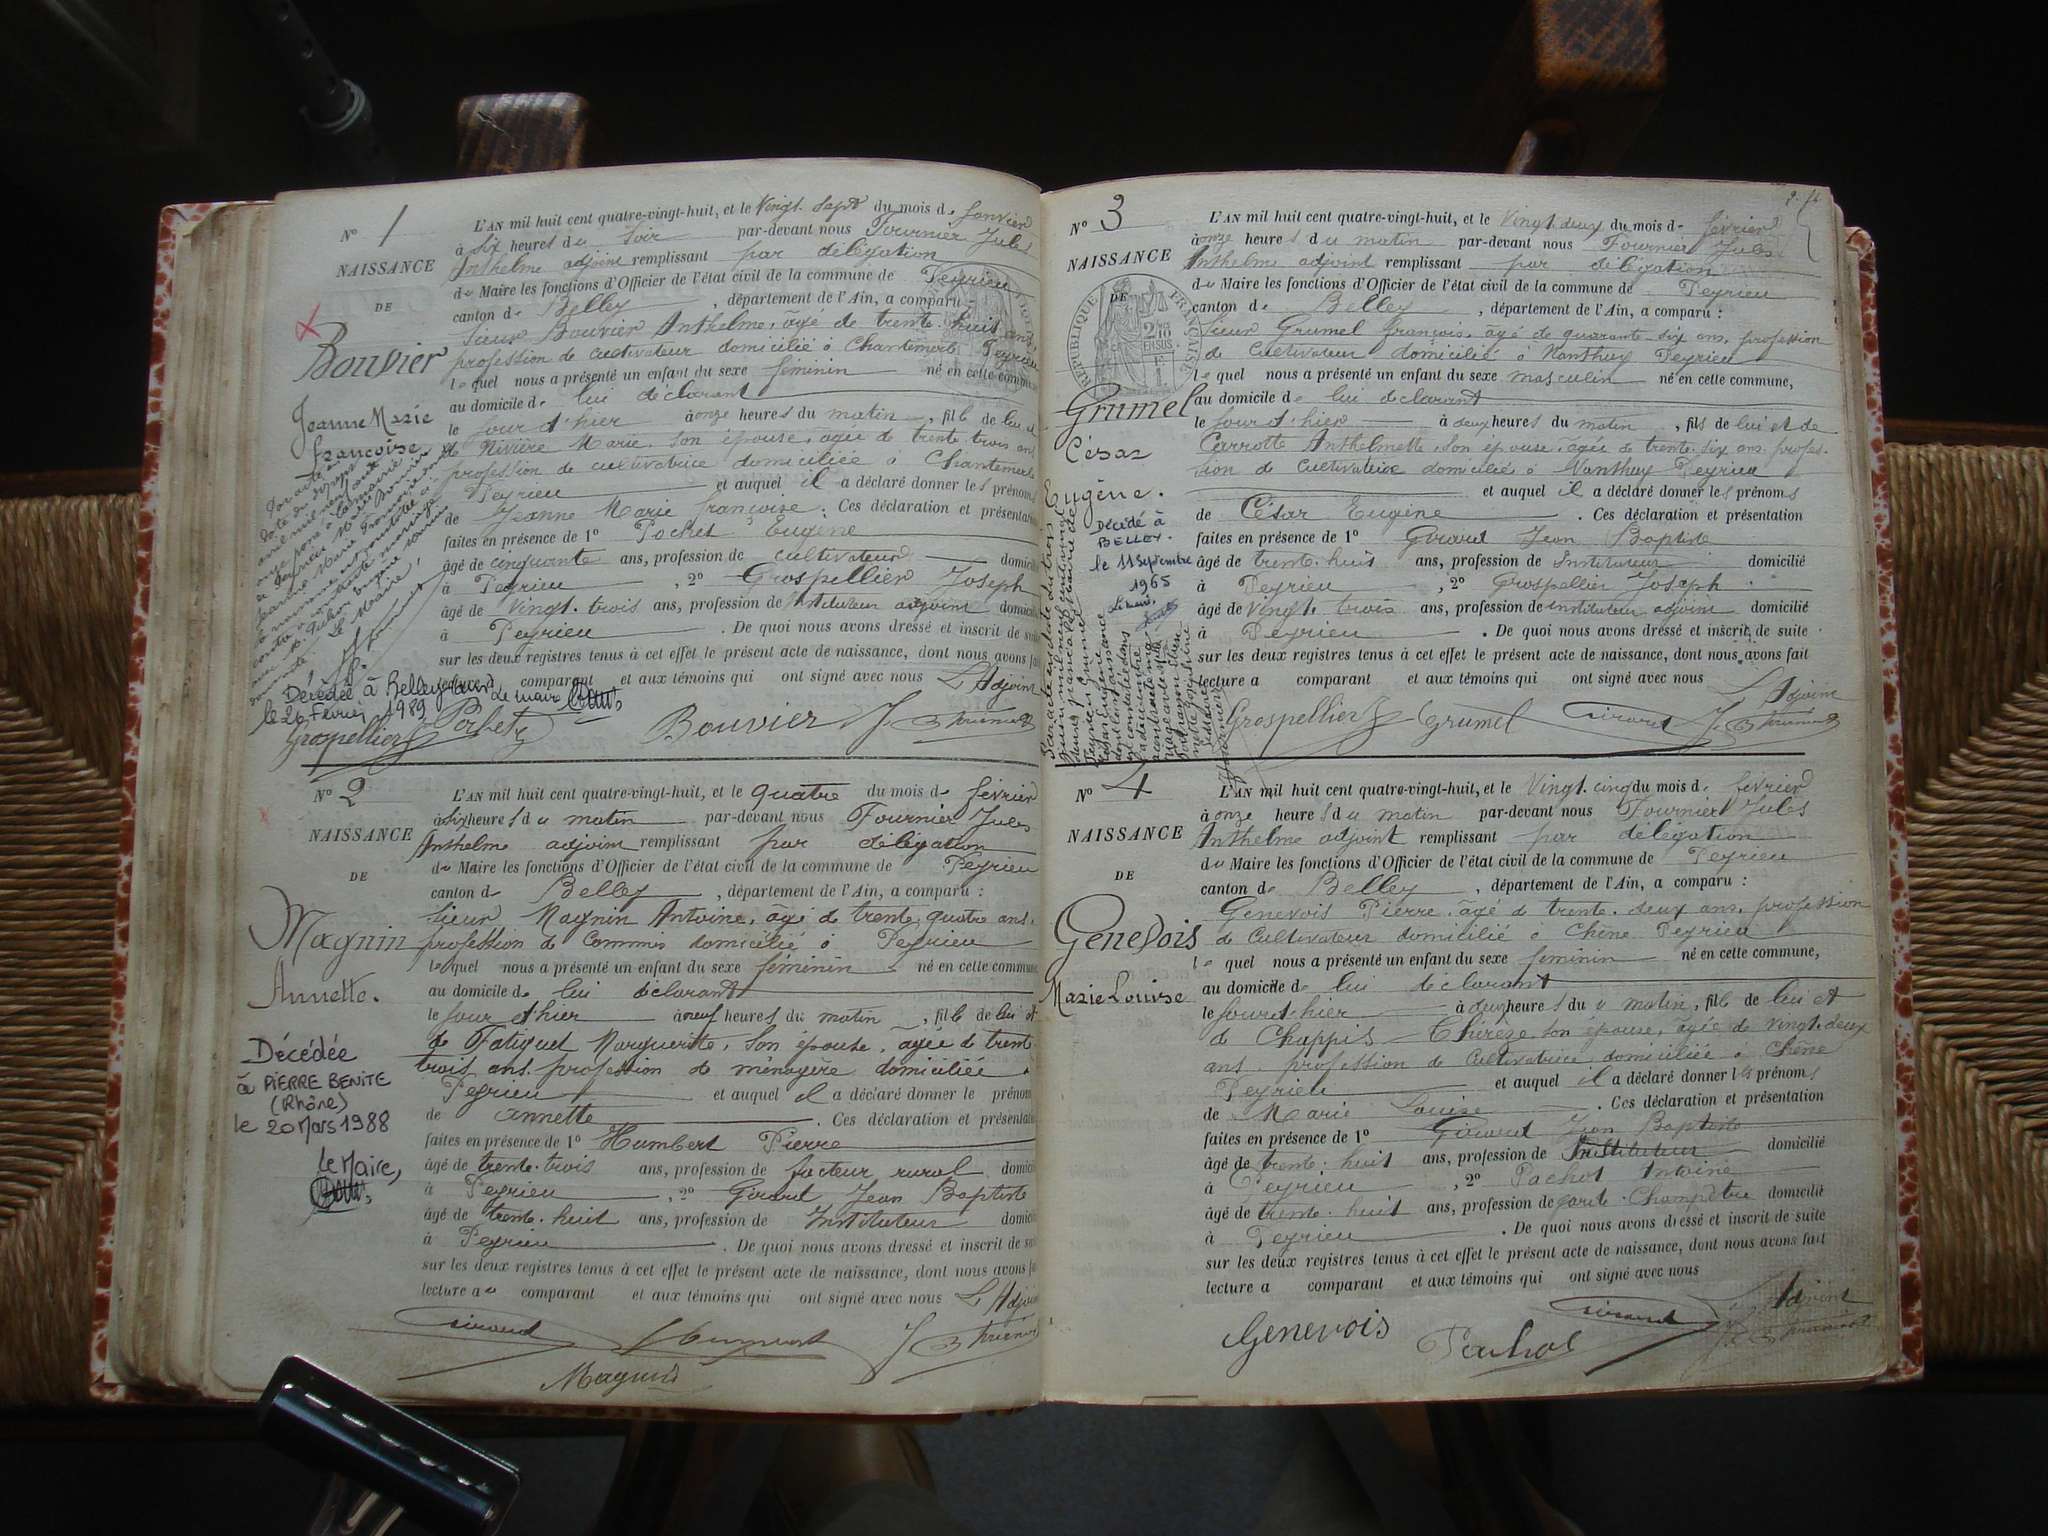 N° 1
NAISSANCE
DE
Bouvier
Jeanne Marie
françoise
Décédée à Belley
le 26 Février 1989
Le maire
L'AN mil huit cent quatre-vingt-huit, et le Vingt. Sept du mois de Janvier
à Six heures du Soir par-devant nous Fournier Jules
Anthelme adjoint remplissant par délégation
du Maire les fonctions d'Officier de l'état civil de la commune de Peyrieu
canton de Belley, département de l'Ain, a comparu
Sieur Bouvier Anthelme, âgé de trente. huit ans,
profession de cultivateur domicilié à Chantemerle Peyrieu
lequel nous a présenté un enfant du sexe féminin né en cette commune
au domicile de lui déclarant
le jour d'hier à onze heures du matin, fille de lui et
de Rivière Marie, Son épouse, âgée de trente. trois ans
profession de cultivatrice domiciliée à Chantemerle
Peyrieu et auquel il a déclaré donner les prénoms
de Jeanne Marie françoise. Ces déclaration et présentation
faites en présence de 1° Pochet Eugène
âgé de cinquante ans, profession de cultivateur domicilié
à Peyrieu, 2° Grospellier Joseph
âgé de Vingt. trois ans, profession de Instituteur adjoint domicilié
à Peyrieu. De quoi nous avons dressé et inscrit de suite
sur les deux registres tenus à cet effet le présent acte de naissance, dont nous avons fait
lecture comparant et aux témoins qui ont signé avec nous L'Adjoint
Grospellier Bouvier
N° 2
NAISSANCE
DE
Magnin
Annette.
Décédée
à PIERRE BENITE
(Rhône)
le 20 Mars 1988
le Maire,
L'AN mil huit cent quatre-vingt-huit, et le quatre du mois de février
à Six heures du matin par-devant nous Fournier Jules
Anthelme adjoint remplissant par délégation
du Maire les fonctions d'Officier de l'état civil de la commune de Peyrieu
canton de Belley, département de l'Ain, a comparu :
Sieur Magnin Antoine, âgé de trente. quatre ans,
profession de Commis domicilié à Peyrieu
lequel nous a présenté un enfant du sexe féminin né en cette commune
au domicile de lui déclarant
le jour d'hier à neuf heures du matin, fille de lui et
de Marguerite, Son épouse, âgée de trente
trois ans, profession de ménagère domiciliée à
Peyrieu et auquel il a déclaré donner le prénom
de Annette. Ces déclaration et présentation
faites en présence de 1° Humbert Pierre
âgé de trente. trois ans, profession de facteur rural domicilié
à Peyrieu, 2° Giraud Jean Baptiste
âgé de trente. huit ans, profession de Instituteur domicilié
à Peyrieu. De quoi nous avons dressé et inscrit de suite
sur les deux registres tenus à cet effet le présent acte de naissance, dont nous avons fait
lecture au comparant et aux témoins qui ont signé avec nous L'Adjoint
Giraud Humbert
Magnin
N° 3
NAISSANCE
DE
RÉPUBLIQUE FRANÇAISE
Grumel
César
Eugène.
Décédé à
BELLEY.
le 11 Septembre
1965
Le maire,
L'AN mil huit cent quatre-vingt-huit, et le Vingt. deux du mois de février
à onze heures du matin par-devant nous Fournier Jules
Anthelme adjoint remplissant par délégation
du Maire les fonctions d'Officier de l'état civil de la commune de Peyrieu
canton de Belley, département de l'Ain, a comparu :
Sieur Grumel françois, âgé de quarante. six ans, profession
de Cultivateur domicilié à Nanthuy Peyrieu
lequel nous a présenté un enfant du sexe masculin né en cette commune,
au domicile de lui déclarant
le jour d'hier à deux heures du matin, fils de lui et de
Carrotte Anthelmette, Son épouse, âgée de trente. six ans, profes-
sion de cultivatrice domicilié à Nanthuy Peyrieu
et auquel il a déclaré donner les prénoms
de César Eugène. Ces déclaration et présentation
faites en présence de 1° Giraud Jean Baptiste
âgé de trente. huit ans, profession de Instituteur domicilié
à Peyrieu, 2° Grospellier Joseph
âgé de Vingt. trois ans, profession de instituteur adjoint domicilié
à Peyrieu. De quoi nous avons dressé et inscrit de suite
sur les deux registres tenus à cet effet le présent acte de naissance, dont nous avons fait
lecture a comparant et aux témoins qui ont signé avec nous
L'Adjoint
Grospellier Grumel Giraud
N° 4
NAISSANCE
DE
Genevois
Marie Louise
L'AN mil huit cent quatre-vingt-huit, et le Vingt. cinq du mois de février
à onze heures du matin par-devant nous Fournier Jules
Anthelme adjoint remplissant par délégation
du Maire les fonctions d'Officier de l'état civil de la commune de Peyrieu
canton de Belley, département de l'Ain, a comparu :
Genevois Pierre, âgé de trente. deux ans, profession
de Cultivateur domicilié à Chêne Peyrieu
lequel nous a présenté un enfant du sexe féminin né en cette commune,
au domicile de lui déclarant
le jour d'hier à deux heures du matin, fille de lui et
de Chappis Thérèse, son épouse, âgée de vingt. deux
ans, profession de Cultivatrice domiciliée à Chêne
Peyrieu et auquel il a déclaré donner les prénoms
de Marie Louise. Ces déclaration et présentation
faites en présence de 1° Giraud Jean Baptiste
âgé de trente. huit ans, profession de Instituteur domicilié
à Peyrieu, 2° Pachot Antoine
âgé de trente. huit ans, profession de garde. Champêtre domicilié
à Peyrieu. De quoi nous avons dressé et inscrit de suite
sur les deux registres tenus à cet effet le présent acte de naissance, dont nous avons fait
lecture a comparant et aux témoins qui ont signé avec nous
L'Adjoint
Genevois Pachot Giraud